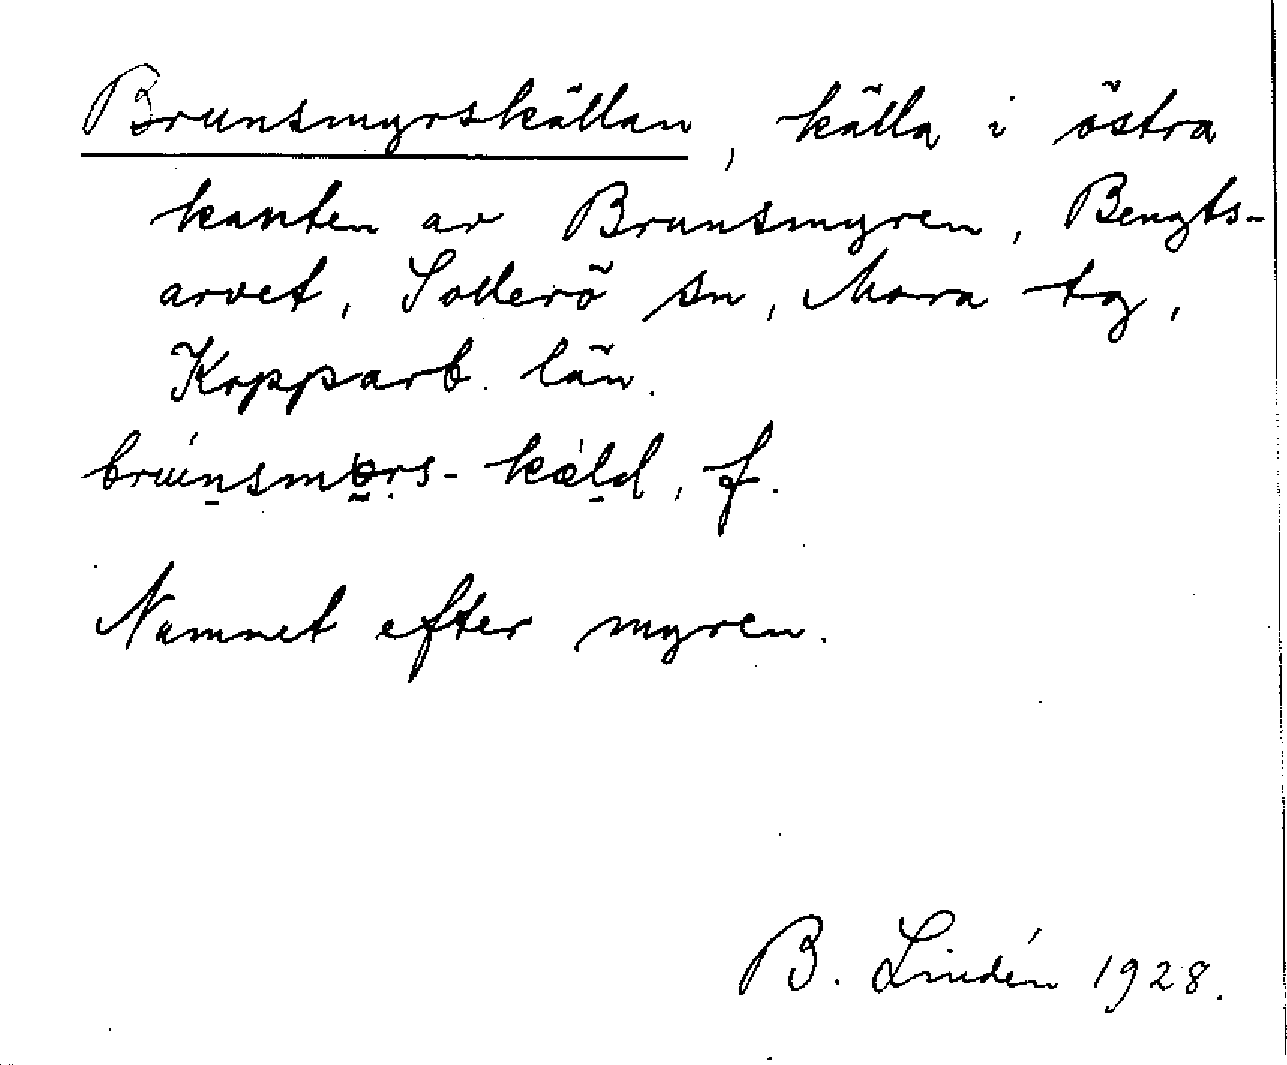 Brunsmyrskällan, källa i östra
kanten av Brunsmyren, Bengts-
arvet, Sollerö sn, Mora tg,
Kopparb. län.
f.
Namnet efter myren.
B. Lindén 1928.